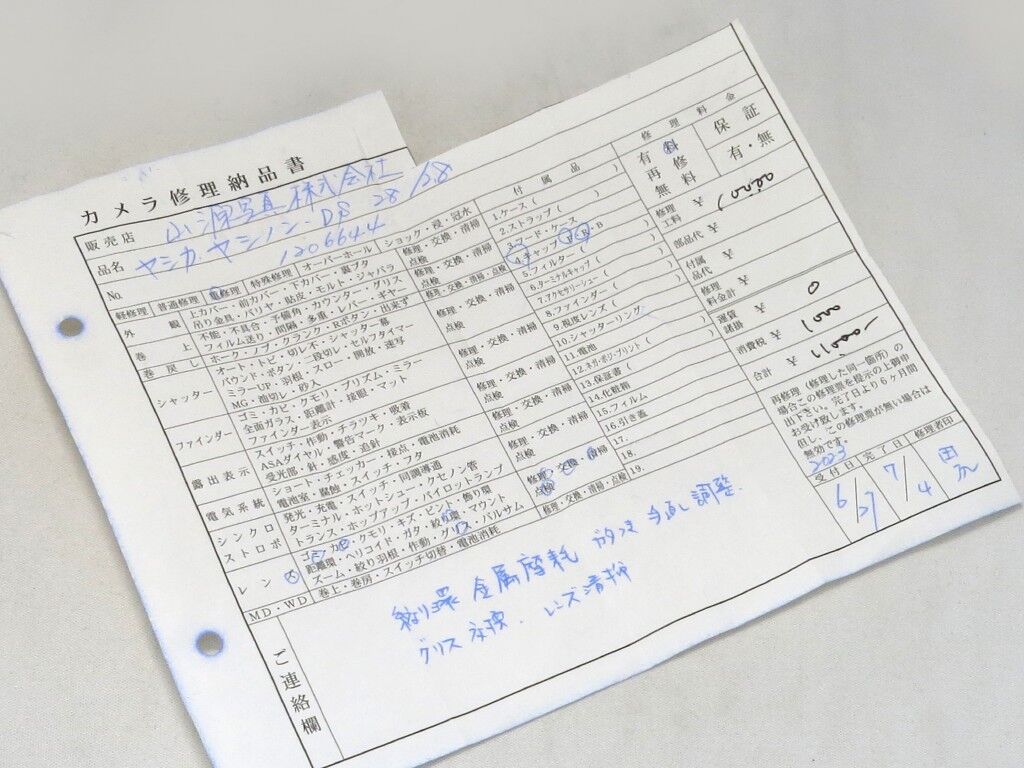 カメラ修理納品書
販売店
品名 ヤシカ・ヤシノン・DS 28/28
No. 1206644
軽修理 普通修理 重修理 特殊修理 オーバーホール ショック・浸・冠水
外観 上カバー・前カバー・下カバー・裏ブタ
吊り金具・バリヤ・貼皮・モルト・ジャバラ
修理・交換・清掃
点検
巻上 不能・不具合・予備角・カウンター・グリス
フィルム送り・間隔・多重・レバー・ギヤー
修理・交換・清掃
点検
巻戻し ホーク・ノブ・クランク・Rボタン・出来ず
修理・交換・清掃・点検
シャッター オート・トビ・切レ不・シャッター幕
バウンド・ボタン・二段切レ・セルフタイマー
ミラーUP・羽根・スロー・開放・速写
MG・油切レ・砂入
修理・交換・清掃
点検
ファインダー ゴミ・カビ・クモリ・プリズム・ミラー
全面ガラス・距離計・接眼・マット
ファインダー表示
修理・交換・清掃
点検
露出表示 スイッチ・作動・チラツキ・吸着
ASAダイヤル・警告マーク・表示板
受光部・針・感度・追針
修理・交換・清掃
点検
電気系統 ショート・チェッカー・接点・電池消耗
電池室・腐蝕・スイッチ・フタ
修理・交換・清掃
点検
シンクロ
ストロボ 発光・充電・スイッチ・同調導通
ターミナル・ホットシュー・クセノン管
トランス・ホップアップ・パイロットランプ
修理・交換・清掃
点検
レンズ ゴミ・カビ・クモリ・キズ・ピント・飾り環
距離環・ヘリコイド・ガタ・絞り環・マウント
ズーム・絞り羽根・作動・グリス・バルサム
修理・交換・清掃
点検
MD・WD 巻上・巻房・スイッチ切替・電池消耗
修理・交換・清掃・点検
付属品
1.ケース( )
2.ストラップ( )
3.フード・ケース
4.キャップ・F・R・B
5.フィルター( )
6.ターミナルキャップ
7.アクセサリーシュー
8.ファインダー( )
9.視度レンズ( )
10.シャッターリング
11.電池
12.ネガ・ポジ・プリント( )
13.保証書( )
14.化粧箱
15.フィルム
16.引き蓋
17.
18.
19.
修理料金
有料
再修
無料
保証
有・無
修理
工料 ¥
部品代 ¥
付属
品代 ¥
修理
料金計 ¥
運賃
諸掛 ¥ 0
消費税 ¥
合計 ¥
再修理(修理した同一箇所)の
場合この修理票を提示の上御申
出下さい。完了日より6ヶ月間
お受け致します。
但し、この修理票が無い場合は
無効です。
2023
受付日 完了日 修理者印
6/27 7/4
ご連絡欄
絞り環 金属磨耗 ガタつき 手直し調整.
グリス交換. レンズ清掃